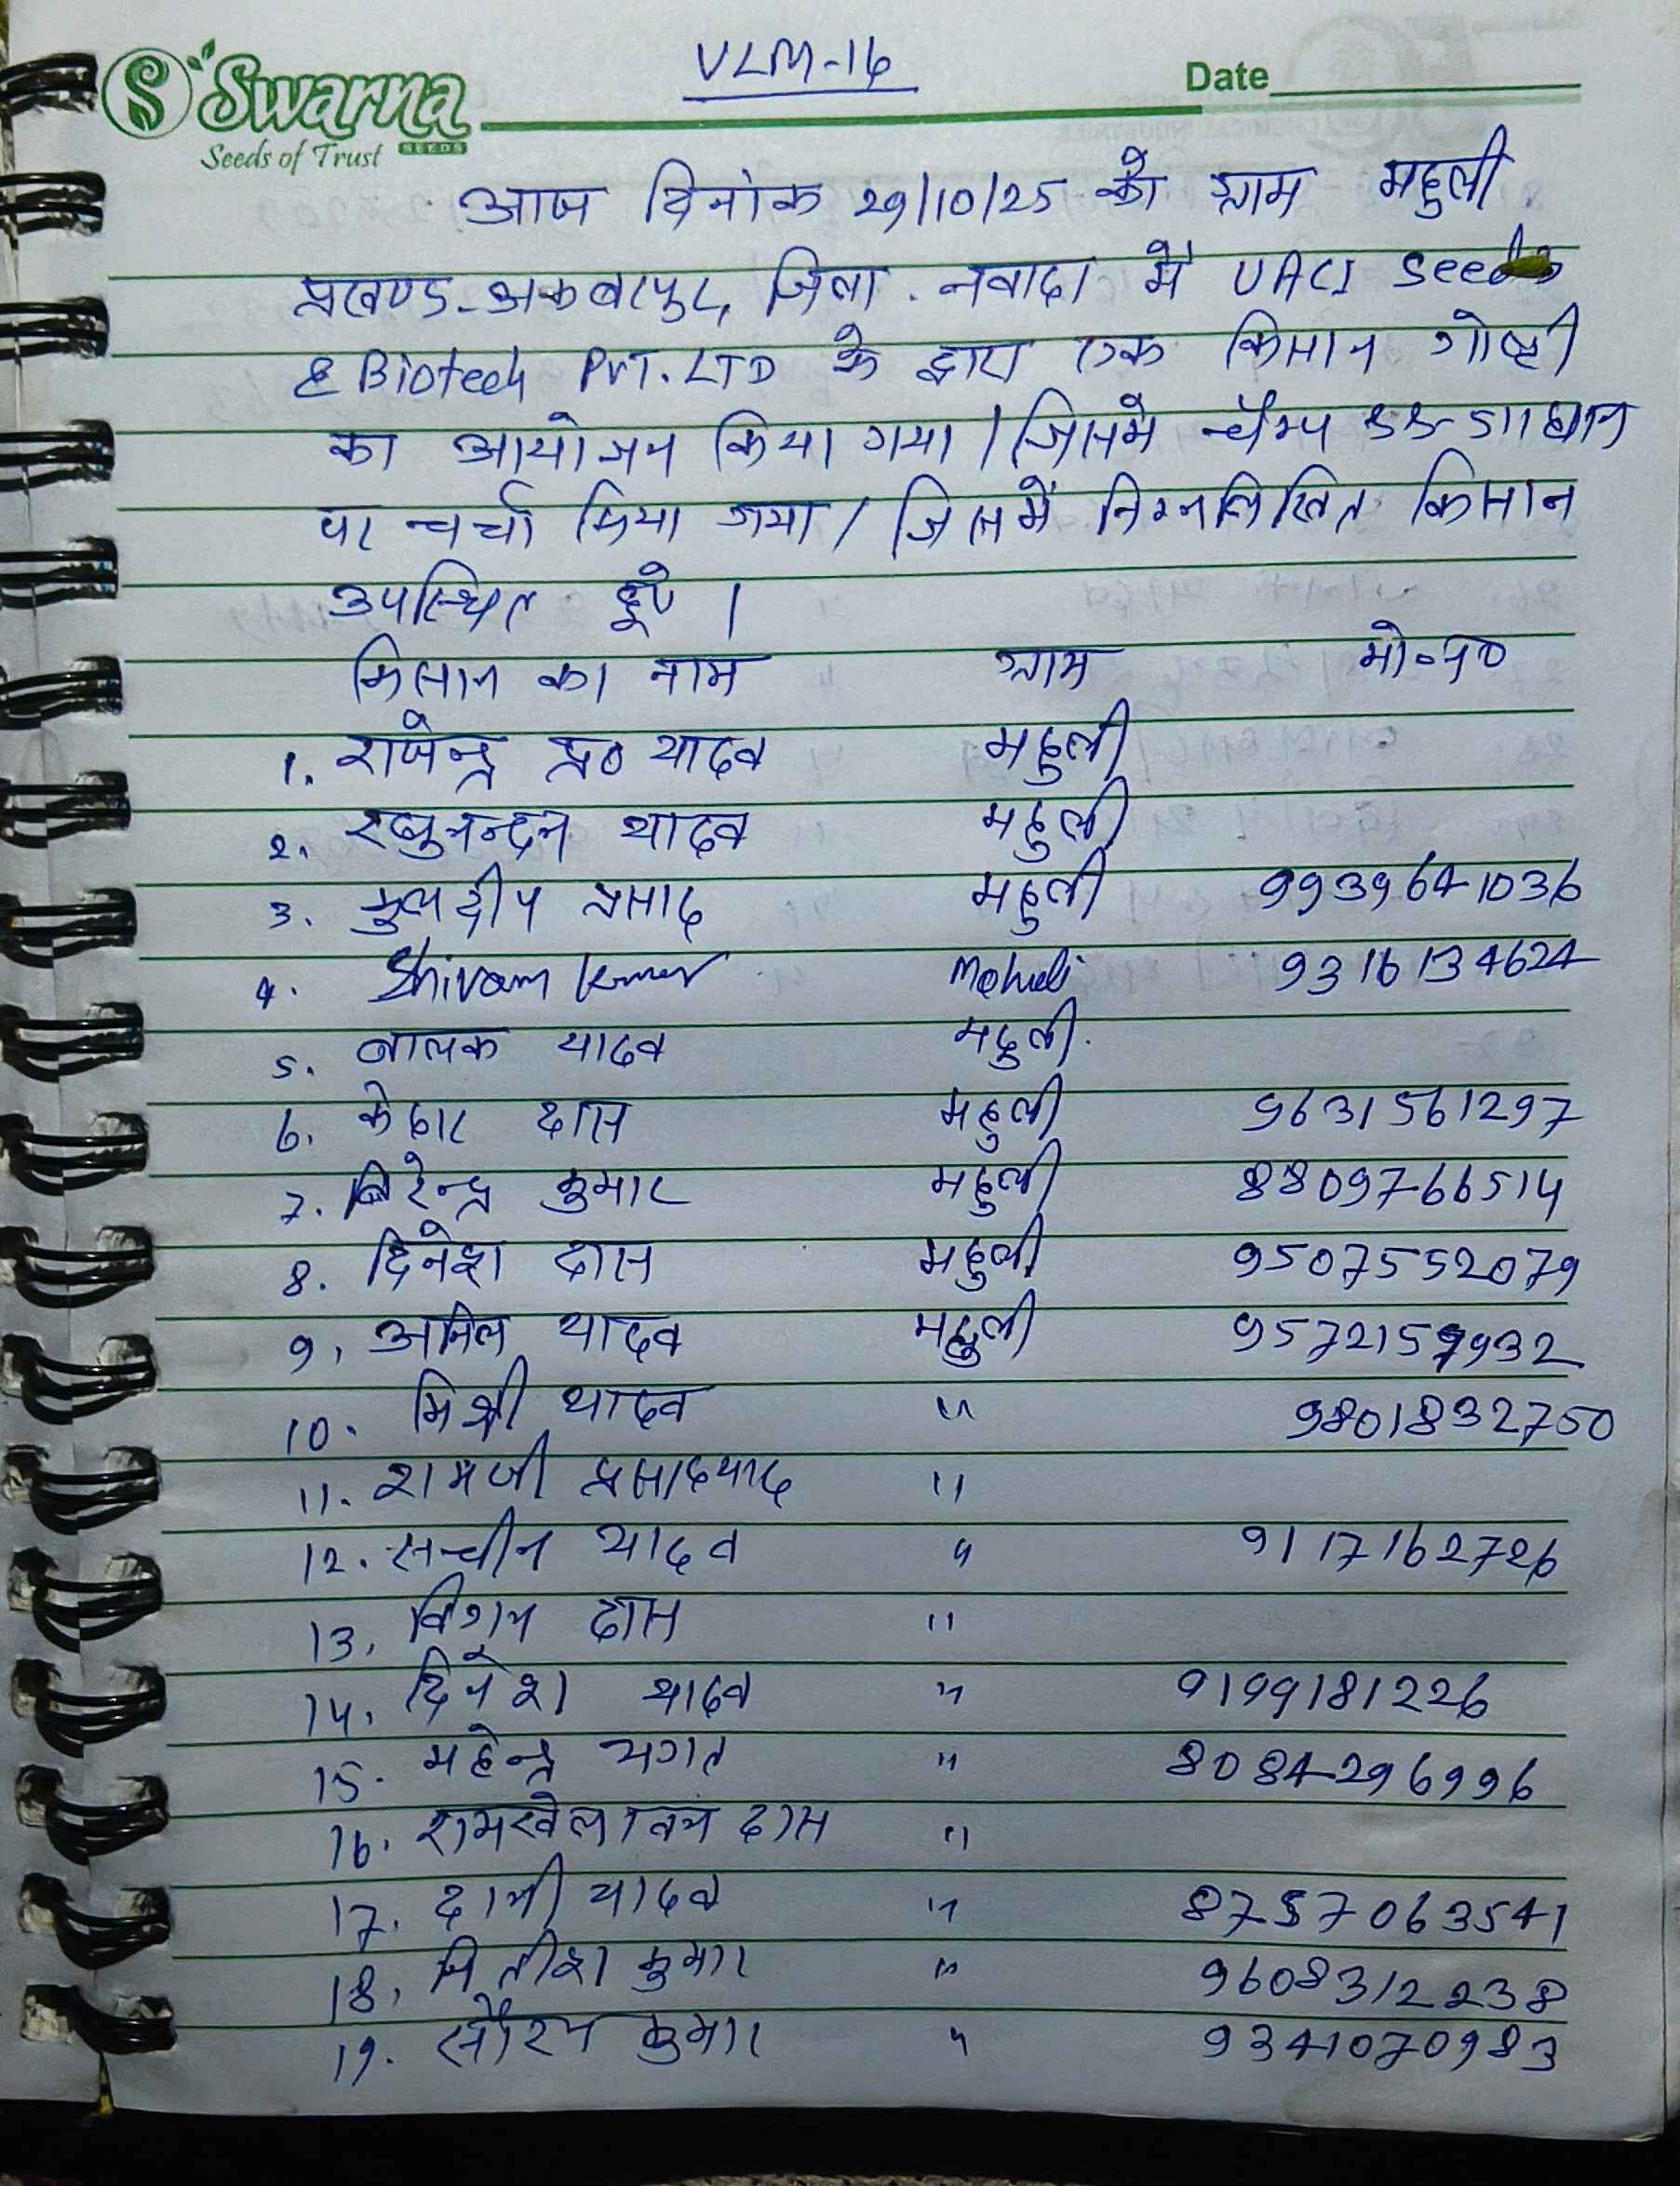 VLM-16
Swarna
SEEDS
Seeds of Trust
Date
आज दिनांक 29/10/25 को ग्राम महुली
प्रखण्ड-अकबरपुर, जिला. नवादा में UACI Seeds
& Biotech PVT. LTD के द्वारा एक किसान गोष्टी
का आयोजन किया गया / जिसमें चैम्प धान
पर चर्चा किया गया / जिसमें निम्नलिखित किसान
उपस्थित हुये |
किसान का नाम ग्राम मो॰न०
1. राजेन्द्र प्र० यादव महुली
2. रघुनन्दन यादव महुली
3. कुलदीप प्रसाद महुली 9939641036
4. Shivam Kumar Mahuli 9316134624
5. बालक यादव महुली.
6. केदार दास महुली 9631561297
7. बिरेन्द्र कुमार महुली 8809766514
8. दिनेश दास महुली 9507552079
9, अनिल यादव महुली 9572159932
10. मिश्री यादव " 9801832750
11. रामजी प्रसाद याद "
12. सचीन यादव " 9117162726
13, दास "
14, दिनेश यादव " 9199181226
15. महेन्द्र भगत " 8084296996
16. रामखेलावन दास "
17. दानी यादव " 8757063541
18, नितीश कुमार " 9608312238
19. सौरभ कुमार " 9341070983